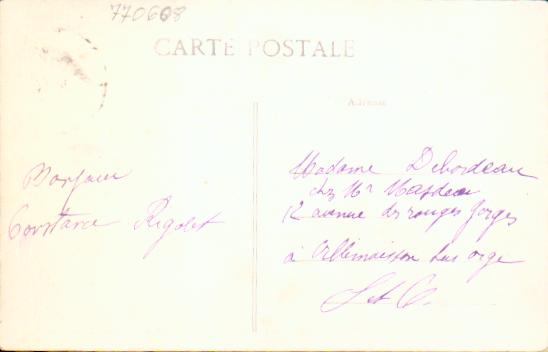 770608
CARTE POSTALE
Adresse
Bonjour
Constance Rigolet
Madame Debordeau
chez Mr
12 avenue des rouges forges
à sur orge
S et O.